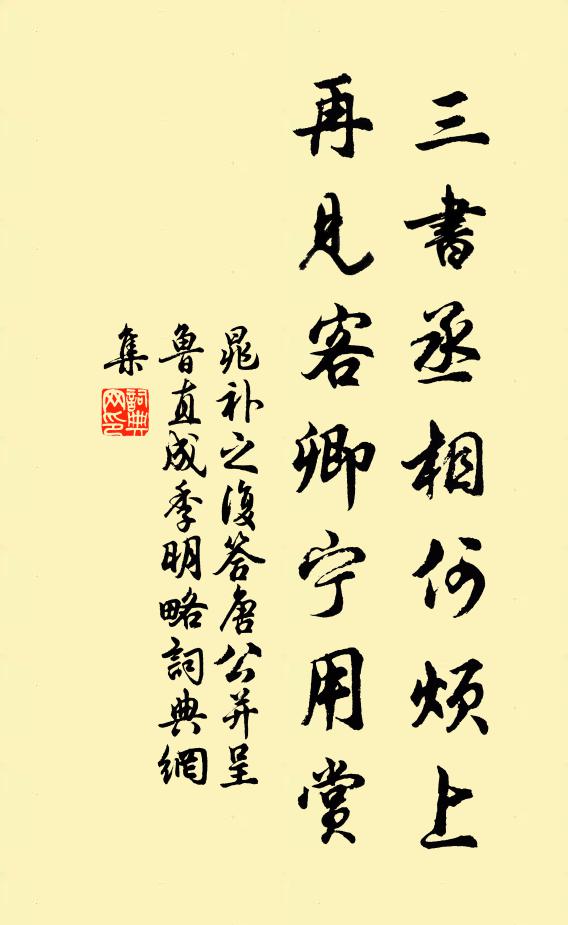 三書丞相何煩上
再見客卿宁用賞
晁补之復答唐公并呈
魯直成季明略詞典網
集
詞典
网印